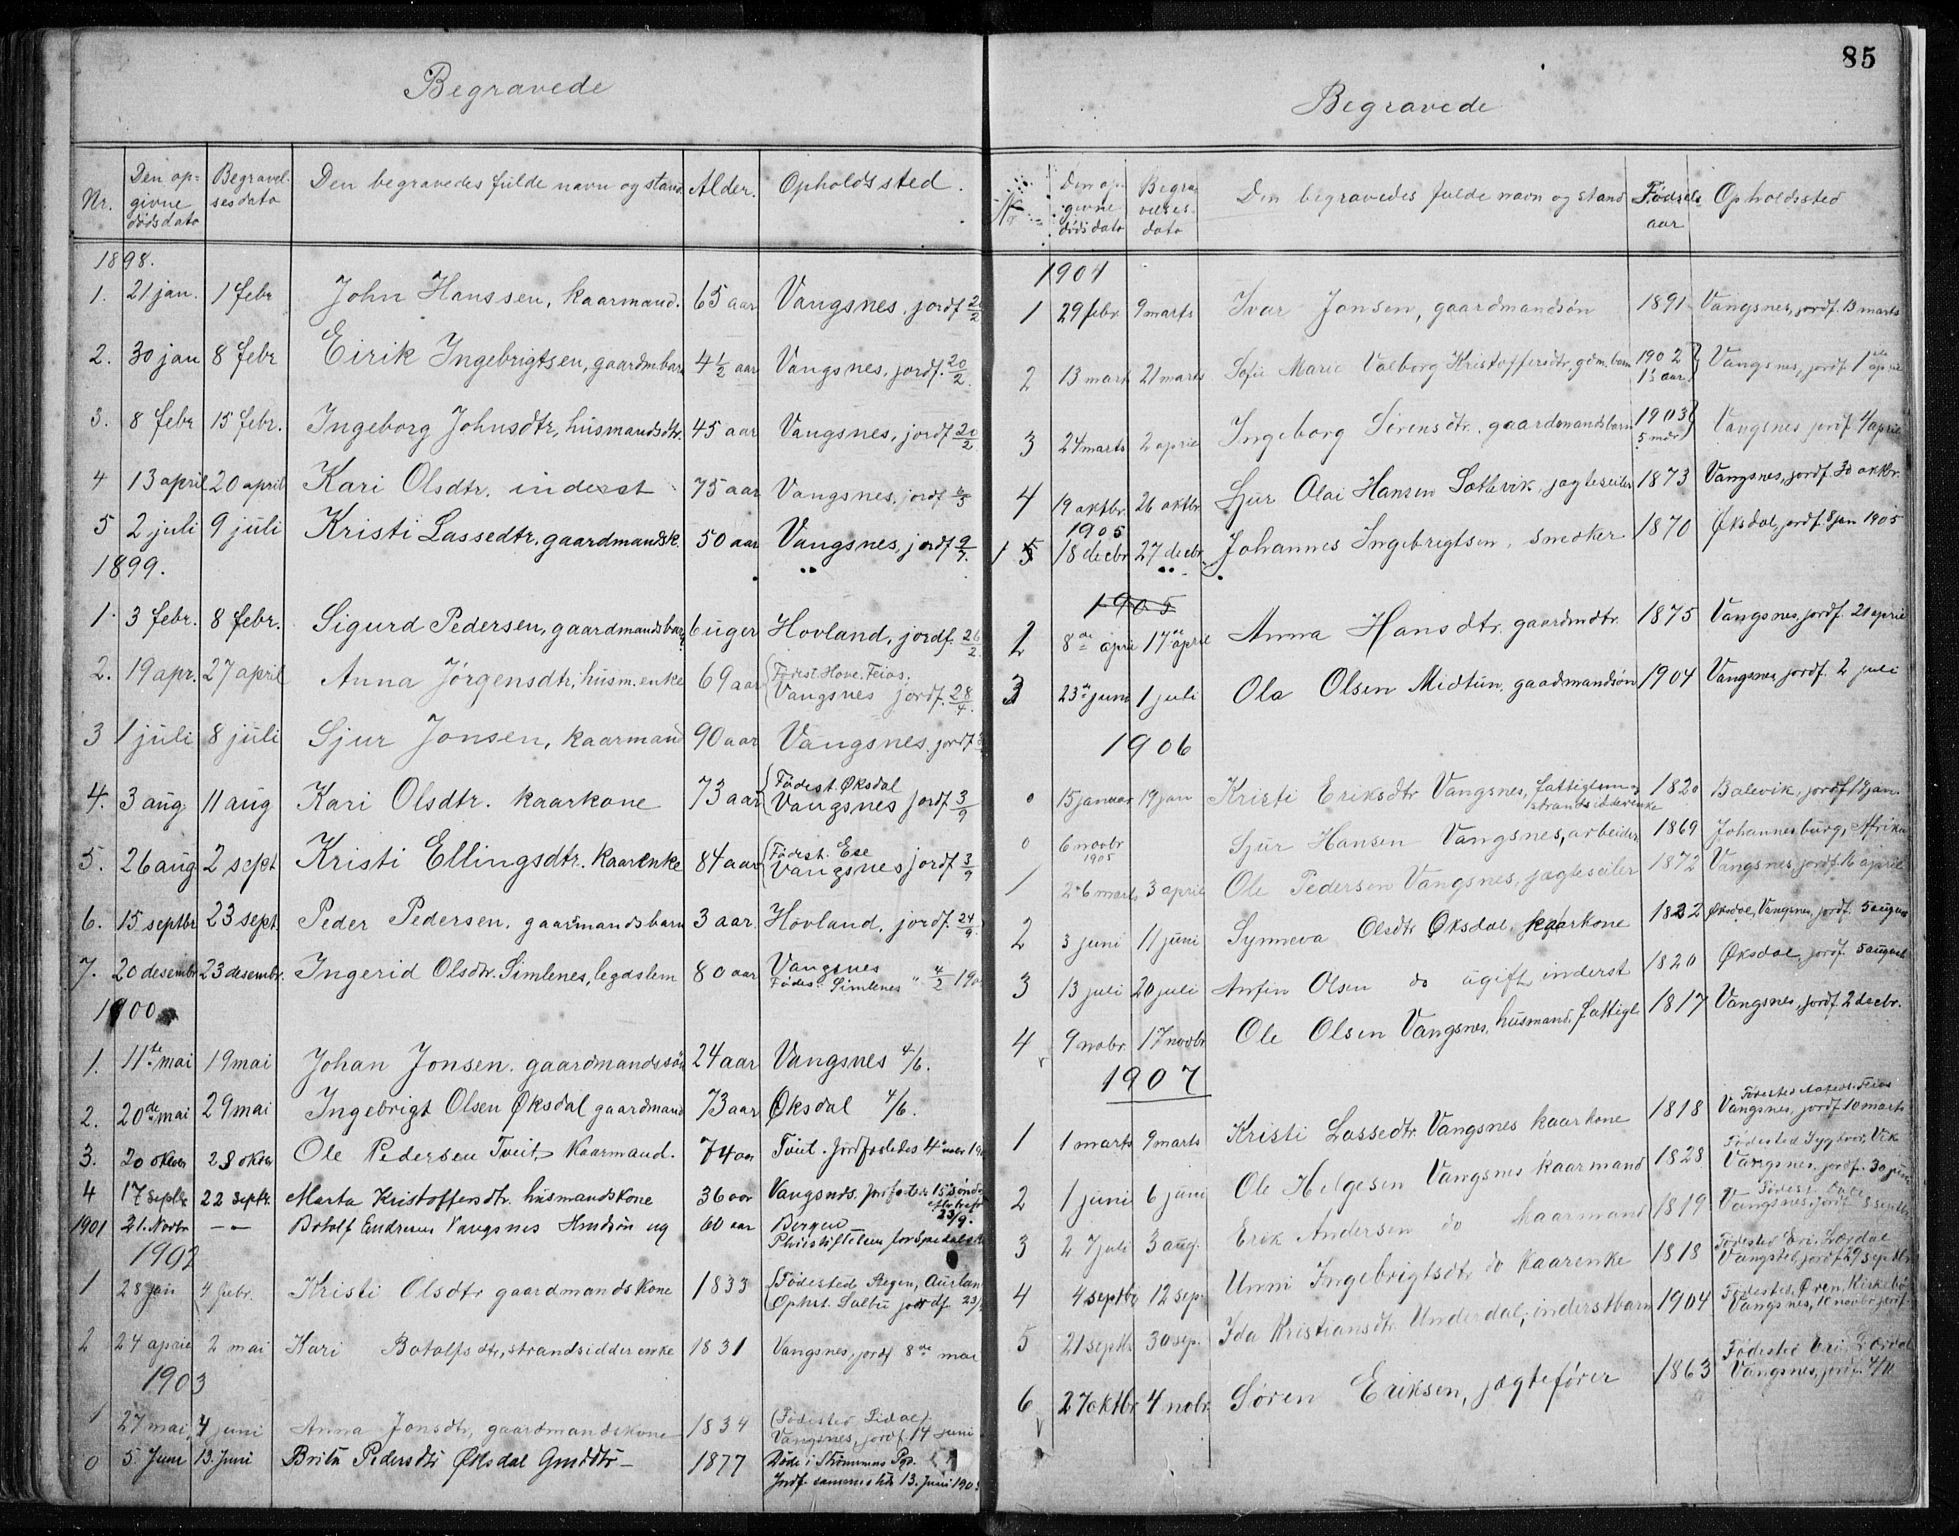 85
Begravede
Nr. Den opgivne dødsdato Begravelsesdato Den begravedes fulde navn og stand Alder. Opholdssted.
1898.
1. 21 jan. 1 febr John Hanssen, kaarmand. 65 aar Vangsnes, jordf 20/2
2. 30 jan 8 febr Eirik Ingebrigtsen, gaardm.barn 4 1/2 aar Vangsnes, jordf. 20/2.
3. 8 febr 15 febr. Ingeborg Johnsdtr, husmandsdtr. 45 aar Vangsnes, jordf 20/2
4 13 april 20 april Kari Olsdtr. inderst 75 aar Vangsnes, jordf
5 2 juli 9 juli Kristi Lassedtr. gaardmandsk. 50 aar Vangsnes, jordf 9/7.
1899.
1. 3 febr. 8 febr. Sigurd Pedersen, gaardmandsbarn 6 uger Hovland, jordf. 26/2
2. 19 apr. 27 april Anna Jørgensdtr, husm.enke 69 aar Fødest. Hove. Feios.
Vangsnes jordf. 28/4.
3 1 juli 8 juli Sjur Jonsen, kaarmand 90 aar Vangsnes. jordf
4. 3 aug. 11 aug Kari Olsdtr. kaarkone 73 aar Fødest. Øksdal
Vangsnes jordf 3/9
5. 26 aug 2 sept Kristi Ellingsdtr. kaarenke 84 aar Fødest. Ese
Vangsnes jordf 3/9
6. 15 septbr 23 sept. Peder Pedersen, gaarmandsbarn 3 aar. Hovland, jordf. 24/9.
7. 20 desembr 23 desembr. Ingerid Olsdtr. Simlenes, legdslem 80 aar Vangsnes
Fødest. Simlenes " 4/2 190
1900
1. 11te mai 19 mai Johan Jonsen. gaardmandssøn 24 aar Vangsnes 4/6.
2. 20de mai 29 mai Ingebrigt Olsen Øksdal gaardmand 73 aar Øksdal 4/6.
3. 20 oktbr 28 oktbr Ole Pedersen Tveit. Kaarmand. 74 aar Tveit. Jordfæstedes 4de novbr 190
4 17 septbr 22 septbr. Marta Kristoffersdtr. husmandskone 36 aar Vangsnes. jordfæstedes 15de søndag
efter trefo
23/9.
1901 21. Novbr — Botolf Endresen Vangsnes Hmdsøn ug 60 aar Bergen
Pleiestiftelsen for Spedalske
1902
1 28 jan 4 febr. Kristi Olsdtr gaardmandskone 1833 Fødested Stegen, Aurlan
Ophst. Salbu jordf. 23/
2 24 april 2 mai Kari Botolfsdtr, strandsidderenke 1831 Vangsnes, jordf 8de mai
1903
1 27 mai 4 juni Anna Jonsdtr, gaardmandskone 1834 (Fødested Lidal)
Vangsnes, jordf. 14 juni
0 5 Juni 13. Juni Brita Pedersdtr Øksdal Gmddtr — 1877 Døde i Strømmens Pgd.
Jordf. sammesteds 13. Juni 1903
Begravede
Nr Den opgivne dødsdato Begravelsesdato Den begravedes fulde navn og stand Fødselsaar Opholdssted
1904
1 29 febr. 9 marts Ivar Jonsen, gaardmandsøn 1891 Vangsnes, jordf. 13 marts
2 13 marts 21 marts Sofie Marie Valborg Kristoffersdtr, gdm.barn 1902
1 1/2 aar Vangsnes, jordf. 1ste april
3 24 marts 2 april Ingeborg Sørensdtr. gaardmandsbarn 1903
5 mdr Vangsnes jordf 4 april
4 19 oktbr. 26 oktbr Sjur Olai Hansen Sætevik jægteseiler 1873 Vangsnes, jordf. 30 oktbr.
1905
1 5 18 decbr 27 decbr Johannes Ingebrigtsen, snedker 1870 Øksdal, jordf. 8 jan 1905
1905
2 8de april 17de april Anna Hansdtr. gaardmdtr. 1875 Vangsnes, jordf. 21 april
3 23de juni 1 juli Ola Olsen Midtun, gaadmandsøn 1904 Vangsnes, jordf. 2 juli
1906
0 15 januar 19 jan Kristi Eriksdtr Vangsnes, fattiglem og
strandsidderenke 1820 Balevik, jordf 19 jan.
0 6 novbr
1905 Sjur Hansen Vangsnes, arbeider 1869 Johannesburg, Afrika
1 26 marts 3 april Ole Pedersen Vangsnes, jægteseiler 1872 Vangsnes, jordf. 16 april
2 3 juni 11 juni Synneva Olsdtr Øksdal, kaarkone 1832 Øksdal, Vangsnes, jordf. 5 august
3 13 juli 20 juli Anfin Olsen do ugift inderst 1820 Øksdal, jordf. 5 august
4 9 novbr 17 novbr Ole Olsen Vangsnes, husmand, fattigl 1817 Vangsnes, jordf. 2 decbr.
1907
1 1 marts 9 marts Kristi Lassedtr Vangsnes kaarkone 1818 Fødested Feios
Vangsnes, jordf 10 marts
2 1 juni 6 juni Ole Helgesen Vangsnes kaarmand 1828 Fødested Vik
Vangsnes, jordf. 30 juni
3 27 juli 3 aug. Erik Andersen do kaarmand 1819 Fødest.
Vangsnes, jordf 8 septbr
4 4 septbr 12 sep. Unni Ingebrigtsdtr do kaarenke 1818 Fødested Eri, Lærdal
Vangsnes, jordf 29 septbr
5 21 septbr 30 sep. Ida Kristiansdtr Underdal, inderstbarn 1904 Fødested, Øren, Kirkebø
Vangsnes, 10 novbr jordf.
6 27 oktbr 4 nobr. Søren Eriksen, jægtefører 1863 Fødested Eri Lærdal
Vangsnes, jordf. 4/11